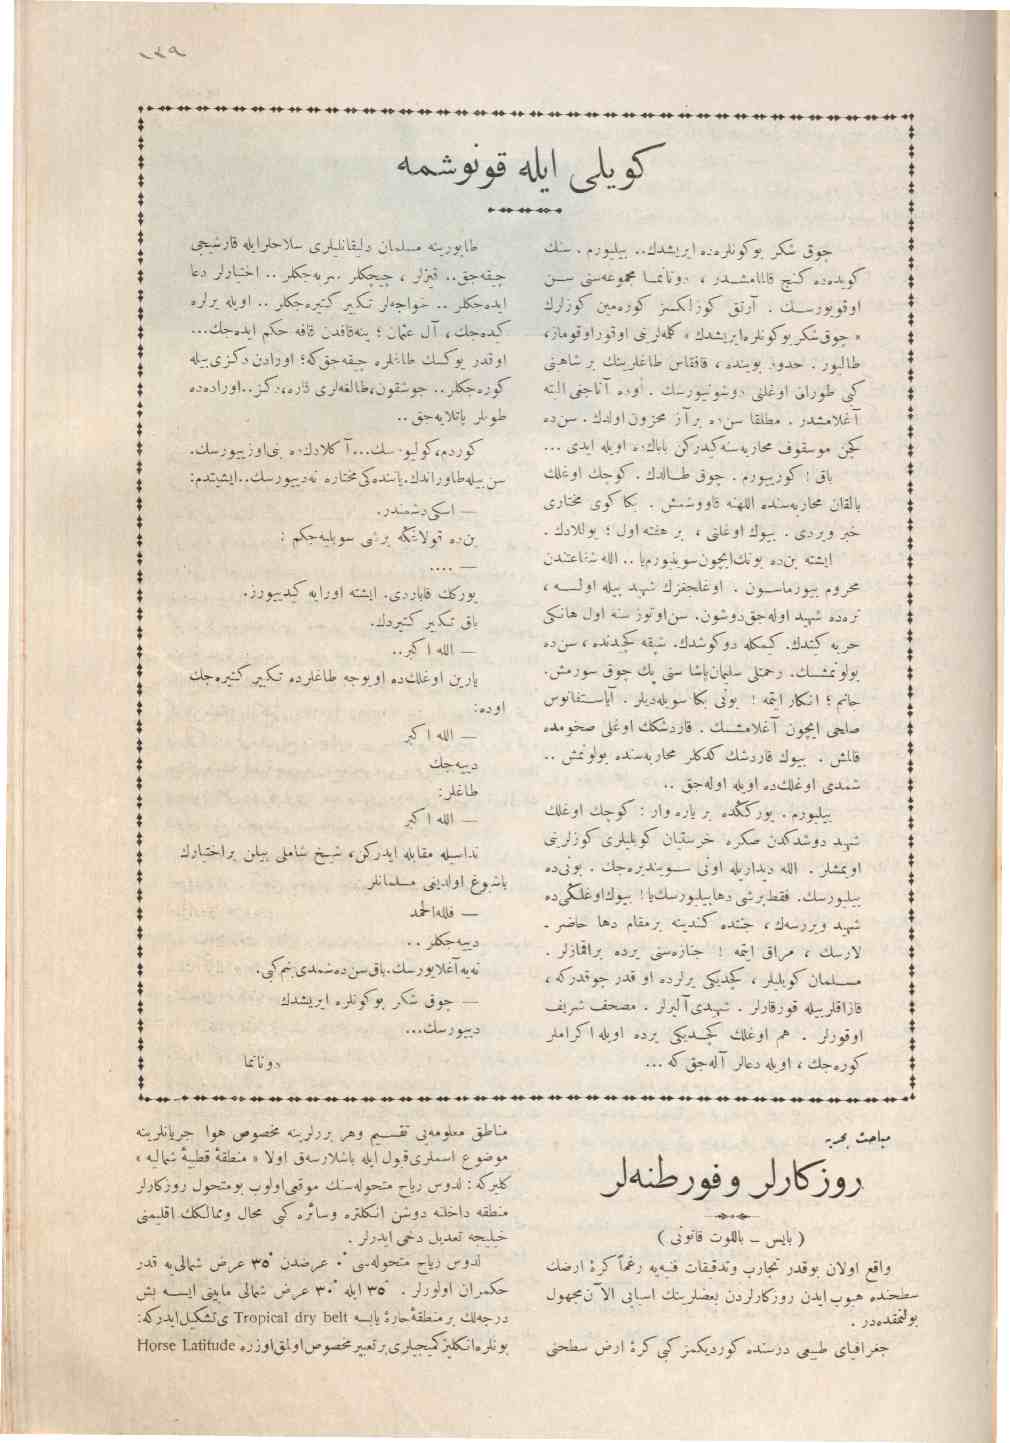 ١٤٩
كویلی ایله قونوشمه
چوق شكر بوكونلره‌ده ایریشدك.. بیلیورم . سنك
كویده‌ده كنج قالمامشــدر ، دونانمــا مجموعه‌سنی ســن
اوقویورســك . آرتق كوزلكسز كوره‌مین كوزلرك
« چوق شكر بوكونلره ایریشدك » كلمه‌لرینی اوقور اوقوماز،
طالیور . حدود بوینده ، قافقاس طاغلرینك بر شاهینی
كبی طوران اوغلنی دوشونیورسك . اوده آناجغی البته
آغلامشدر . مطلقا سن‌ده بر آز محزون اولدك . سن‌ده
كچن موسقوف محاربه‌سنه كیدركن باباك‌ده اویله ایدی ...
باق ! كوریبورم . چوق طــالدك . كوچك اوغلك
بالقان محاربه‌سنده اللهنه قاووشمش . بكا كوی مختاری
خبر ویردی . بیوك اوغلنی ، بر هفته اول ؛ یوللادك .
ایشته بن‌ده بونك‌ایچون سوینیورم‌یا .. الله شفاعتندن
محروم بیورماســون . اوغلجغزك شهید بیله اولــه ،
نره‌ده شهید اوله‌جق دوشون. سن اوتوز سنه اول هانكی
حربه كیتدك. كیمكله دوكوشدك. شیقه كچیدنده ، سن‌ده
بولونمشــك. رحمتلی سلیمان پاشا سنی پك چوق سورمش.
جانم ؛ انكار ایتمه ! بونی بكا سویله‌دیلر . آیاستفانوس
صلحی ایچون آغلامشــك . قاردشكك اوغلی صخومده
قالمش . بیوك قاردشك كدكلر محاربه‌سنده بولونمش ..
شمدی اوغلك‌ده اویله اوله‌جق ..
بیلیورم. یوركگده بر یاره وار : كوچك اوغلك
شهید دوشدكدن صكره خرستیان كویلیلری كوزلرینی
اویمشلر . الله دیداریله اونی ســویندیره‌جك . بونی‌ده
بیلیورسك. فقط برشی دها بیلیورسك‌یا! بیوك اوغلكی‌ده
شهید ویررسه‌ك ، جنتده كندینه بر مقام دها حاضر ـ
لارسك ، مراق ایتمه ! جنازه‌سنی یرده براقمازلر .
مســلمان كویلیلر ، كچدیكی یرلرده او قدر چوقدركه ،
قازاقلر بیله قورقارلر . شهیدی آلیرلر . مصحف شریف
اوقورلر . هم اوغلك كچــدیكی یرده اویله اكراملر
كوره‌جك ، اویله دعالر آله‌جق كه ...
طابورینه مسلمان دلیقانلیلری سلاحلرایله قارشیجی
چیقه‌جق.. قیزلر ، چیچكلر سرپه‌جكلر .. اختیارلر دعا
ایده‌جكلر .. خواجه‌لر تكبیر كتیره‌جكلر .. اویله یرلره
كیده‌جك ، آل عثمان ؛ ینه‌قافدن قافه حكم ایده‌جك...
اوقدر یوكسك طاغلره چیقه‌جق‌كه ؛ اورادن دكزی‌بیله
كوره‌جكلر .. جوشقون، طالغه‌لری قاره، دكز..اوراده‌ده
طوپلر پاتلایه‌جق ..
كوردم، كولیورسك...آكلادك‌ده بنی اوزیبورسك.
سن بیله‌طاوراندك. یاننده‌كی مختاره نه‌دییورسك..ایشیتدم:
— اسكی دشمندر.
بن‌ده قولاغكه برشی سویلیه‌جكم :
— ....
یوركك قاباردی. ایشته اورایه كیدییورز.
باق تكبیر كتیردك.
— الله اكبر..
یارین اوغلك‌ده اویوجه طاغلرده تكبیر كتیره‌جك
اوده:
— الله اكبر
دییه‌جك
طاغلر:
— الله اكبر
نداسیله مقابله ایدركن، شیخ شاملی بیلن بر اختیارك
باشبوغ اولدیغی مسلمانلر
— فلله‌الحمد
دییه‌جكلر ..
نه‌یه آغلایورسك. باق سن‌ده شمدی بنم كبی.
— چوق شكر بوكونلره ایریشدك
دییورسك...
دونانما
مباحث بحریه
روزكارلر و فورطنه‌لر
( بایس – باللوت قانونی )
واقع اولان بوقدر تجارب وتدقیقات فنیه‌یه رغماً كرۀ ارضك
سطحنده هبوب ایدن روزكارلردن بعضلرینك اسبابی الآن مجهول
بولنمقده‌در .
جغرافیای طبیعی درسنده كوردیكمز كبی كرۀ ارض سطحی
مناطق معلومه‌یی تقســیم وهر بررلرینه مخصوص هوا جریانلرینه
موضوع اسملری قبول ایله باشلارسه‌ق اولا « منطقۀ قطبیۀ شمالیه »
كلیركه : لدوس ریاح متحوله‌سنك موقعی اولوب بو متحول روزكارلر
منطقه داخلنه دوشن انكلتره وسائره كبی محال وممالكك اقلیمنی
خیلیجه تعدیل دخی ایدرلر .
لدوس ریاح متحوله‌سی ٠° عرضدن ٣٥° عرض شمالی‌یه قدر
حكمران اولورلر . ٣٥° ایله ٣٠° عرض شمالی مابینی ایســه بش
درجه‌لك بر منطقۀ حارۀ یابسه Tropical dry belt ی تشكیل ایدركه :
بونلره انكلیز كمیجیلری بر تعبیر مخصوص اولمق اوزره Horse Latitude